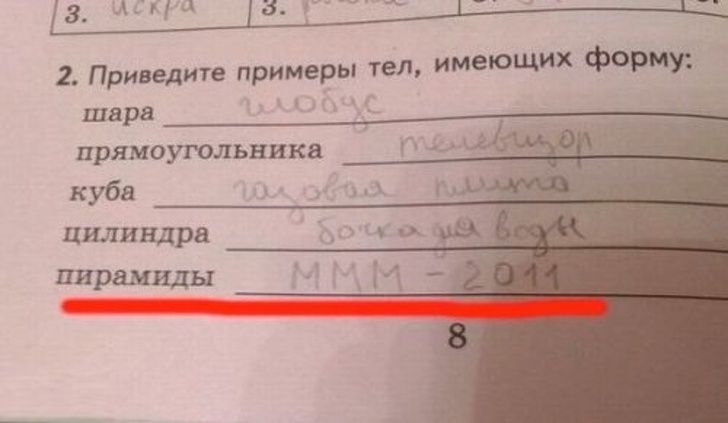 3. искра 3.
2. Приведите примеры тел, имеющих форму:
шара глобус
прямоугольника телевизор
куба газовая плита
цилиндра бочка для воды
пирамиды МММ - 2011
8